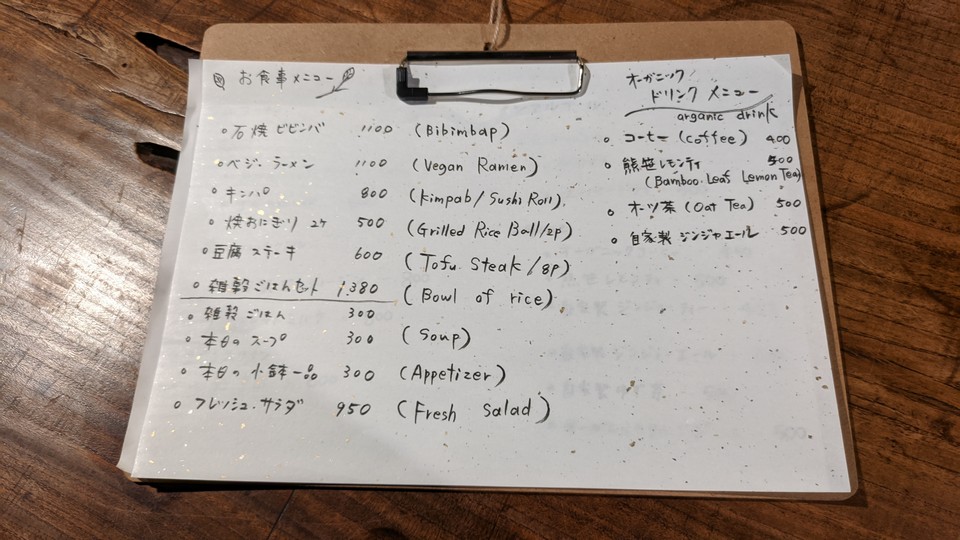 お食事メニュー
。石焼 ビビンバ 1100 (Bibimbap)
。ベジ。ラーメン 1100 (Vegan Ramen)
。キンパ 800 (Kimpab/Sushi Roll).
。焼おにぎり 2ヶ 500 (Grilled Rice Ball/2p)
。豆腐 ステーキ 600 (Tofu Steak/8p)
。雑穀ごはんセット 1,380 (Bowl of rice)
。雑穀 ごはん 300
。本日の スープ 300 (Soup)
。本日の 小鉢一品 300 (Appetizer)
。フレッシュ・サラダ 950 (Fresh Salad)
オーガニック
ドリンク メニュー
organic drink
。コーヒー (coffee) 400
。熊笹レモンティ 500
(Bamboo Leaf Lemon Tea)
。オーツ茶 (Oat Tea) 500
。自家製 ジンジャエール 500